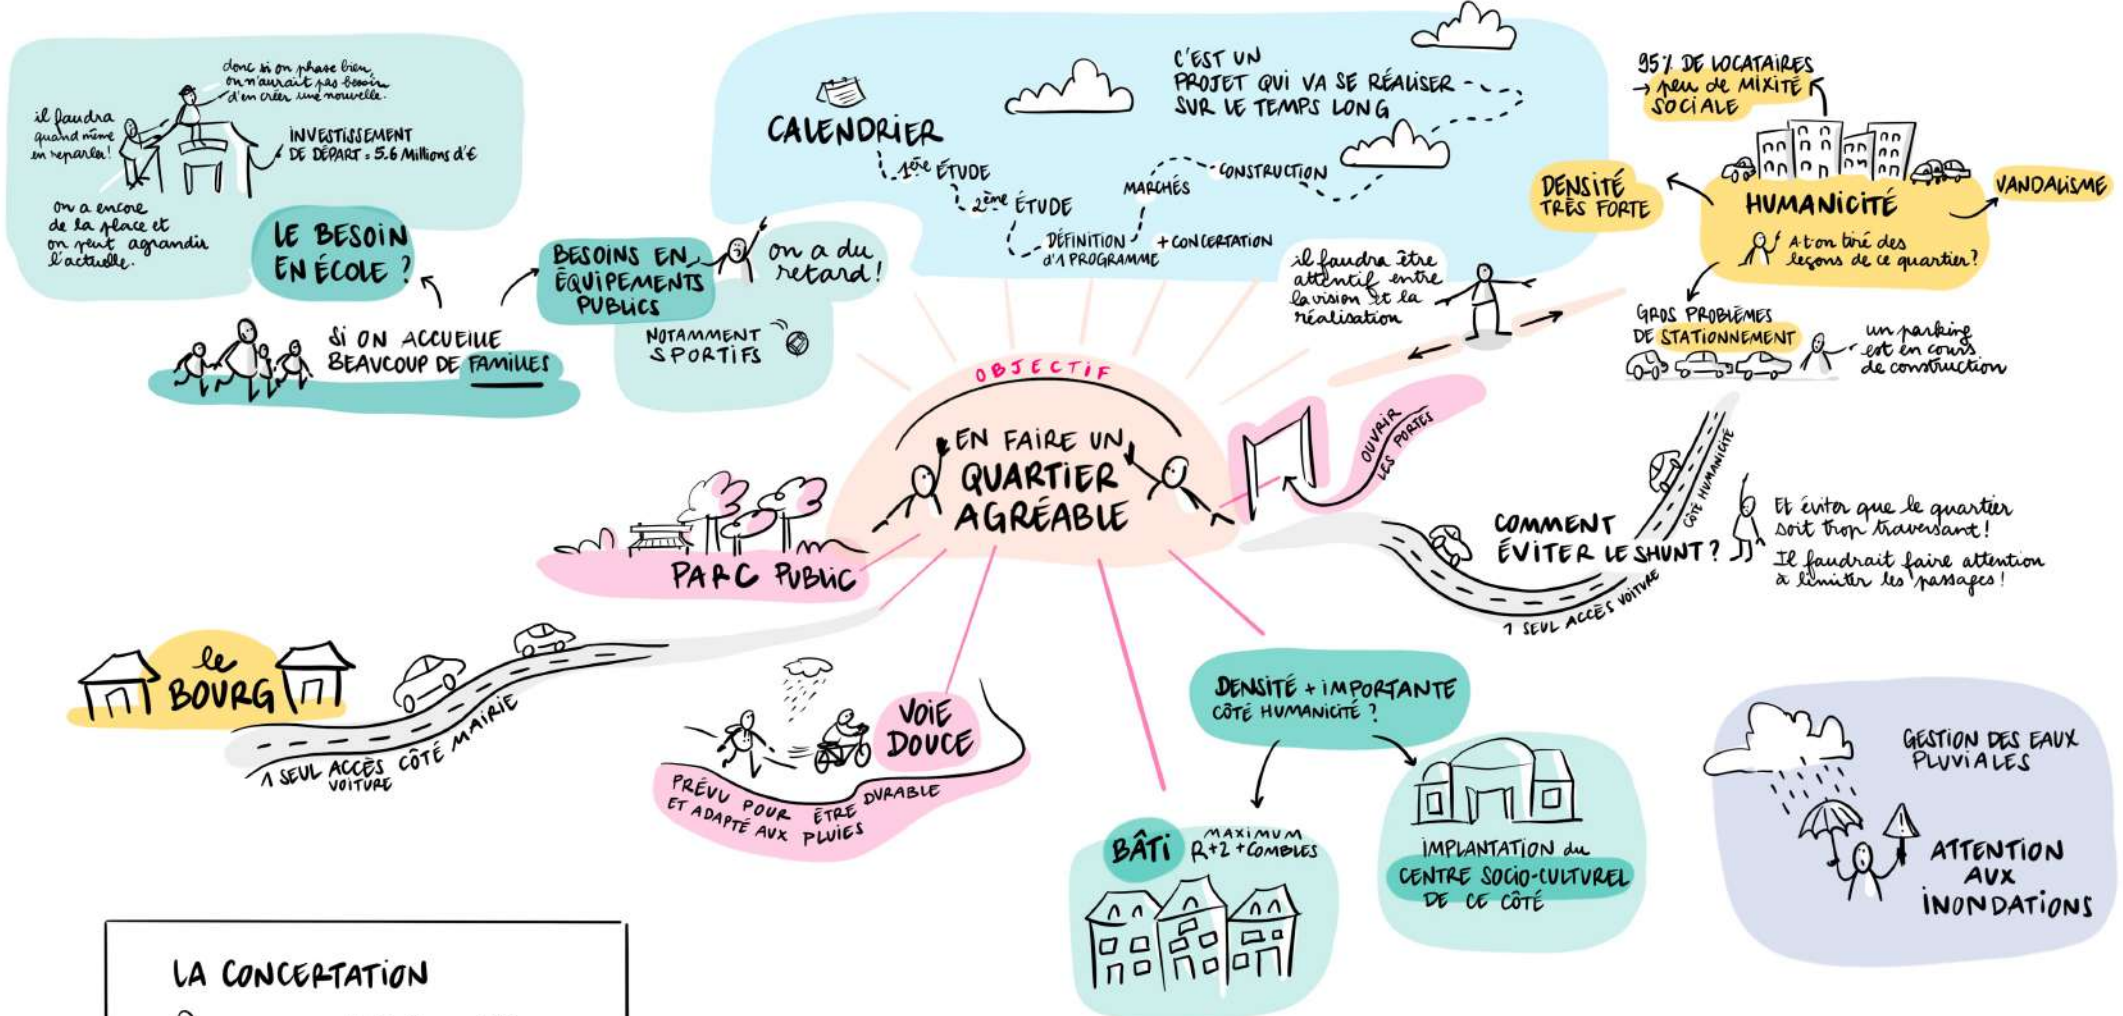 donc si on phase bien,
on n'aurait pas besoin
d'en créer une nouvelle.
il faudra
quand même
en reparler!
INVESTISSEMENT
DE DÉPART : 5.6 Millions d'€
on a encore
de la place et
on peut agrandir
l'actuelle.
LE BESOIN
EN ÉCOLE ?
BESOINS EN
ÉQUIPEMENTS
PUBLICS
on a du
retard!
NOTAMMENT
SPORTIFS
Si ON ACCUEILLE
BEAUCOUP DE FAMILLES
CALENDRIER
1ère ÉTUDE
2ème ÉTUDE
DÉFINITION
d'1 PROGRAMME
+ CONCERTATION
MARCHÉS
CONSTRUCTION
C'EST UN
PROJET QUI VA SE RÉALISER
SUR LE TEMPS LONG
il faudra être
attentif entre
la vision et la
réalisation
95% DE LOCATAIRES
→ peu de MIXITÉ
SOCIALE
DENSITÉ
TRÈS FORTE
HUMANICITÉ
VANDALISME
A t-on tiré des
leçons de ce quartier?
GROS PROBLÈMES
DE STATIONNEMENT
un parking
est en cours
de construction
OBJECTIF
EN FAIRE UN
QUARTIER
AGRÉABLE
OUVRIR
LES PORTES
PARC PUBLIC
CÔTÉ HUMANICITÉ
COMMENT
ÉVITER LE SHUNT ?
1 SEUL ACCÈS VOITURE
Et éviter que le quartier
soit trop traversant!
Il faudrait faire attention
à limiter les passages!
le
BOURG
1 SEUL ACCÈS CÔTÉ MAIRIE
VOITURE
VOIE
DOUCE
PRÉVU POUR ÊTRE DURABLE
ET ADAPTÉ AUX PLUIES
DENSITÉ + IMPORTANTE
CÔTÉ HUMANICITÉ ?
BÂTI
MAXIMUM
R+2 + COMBLES
IMPLANTATION du
CENTRE SOCIO-CULTUREL
DE CE CÔTÉ
GESTION DES EAUX
PLUVIALES
ATTENTION
AUX
INONDATIONS
LA CONCERTATION